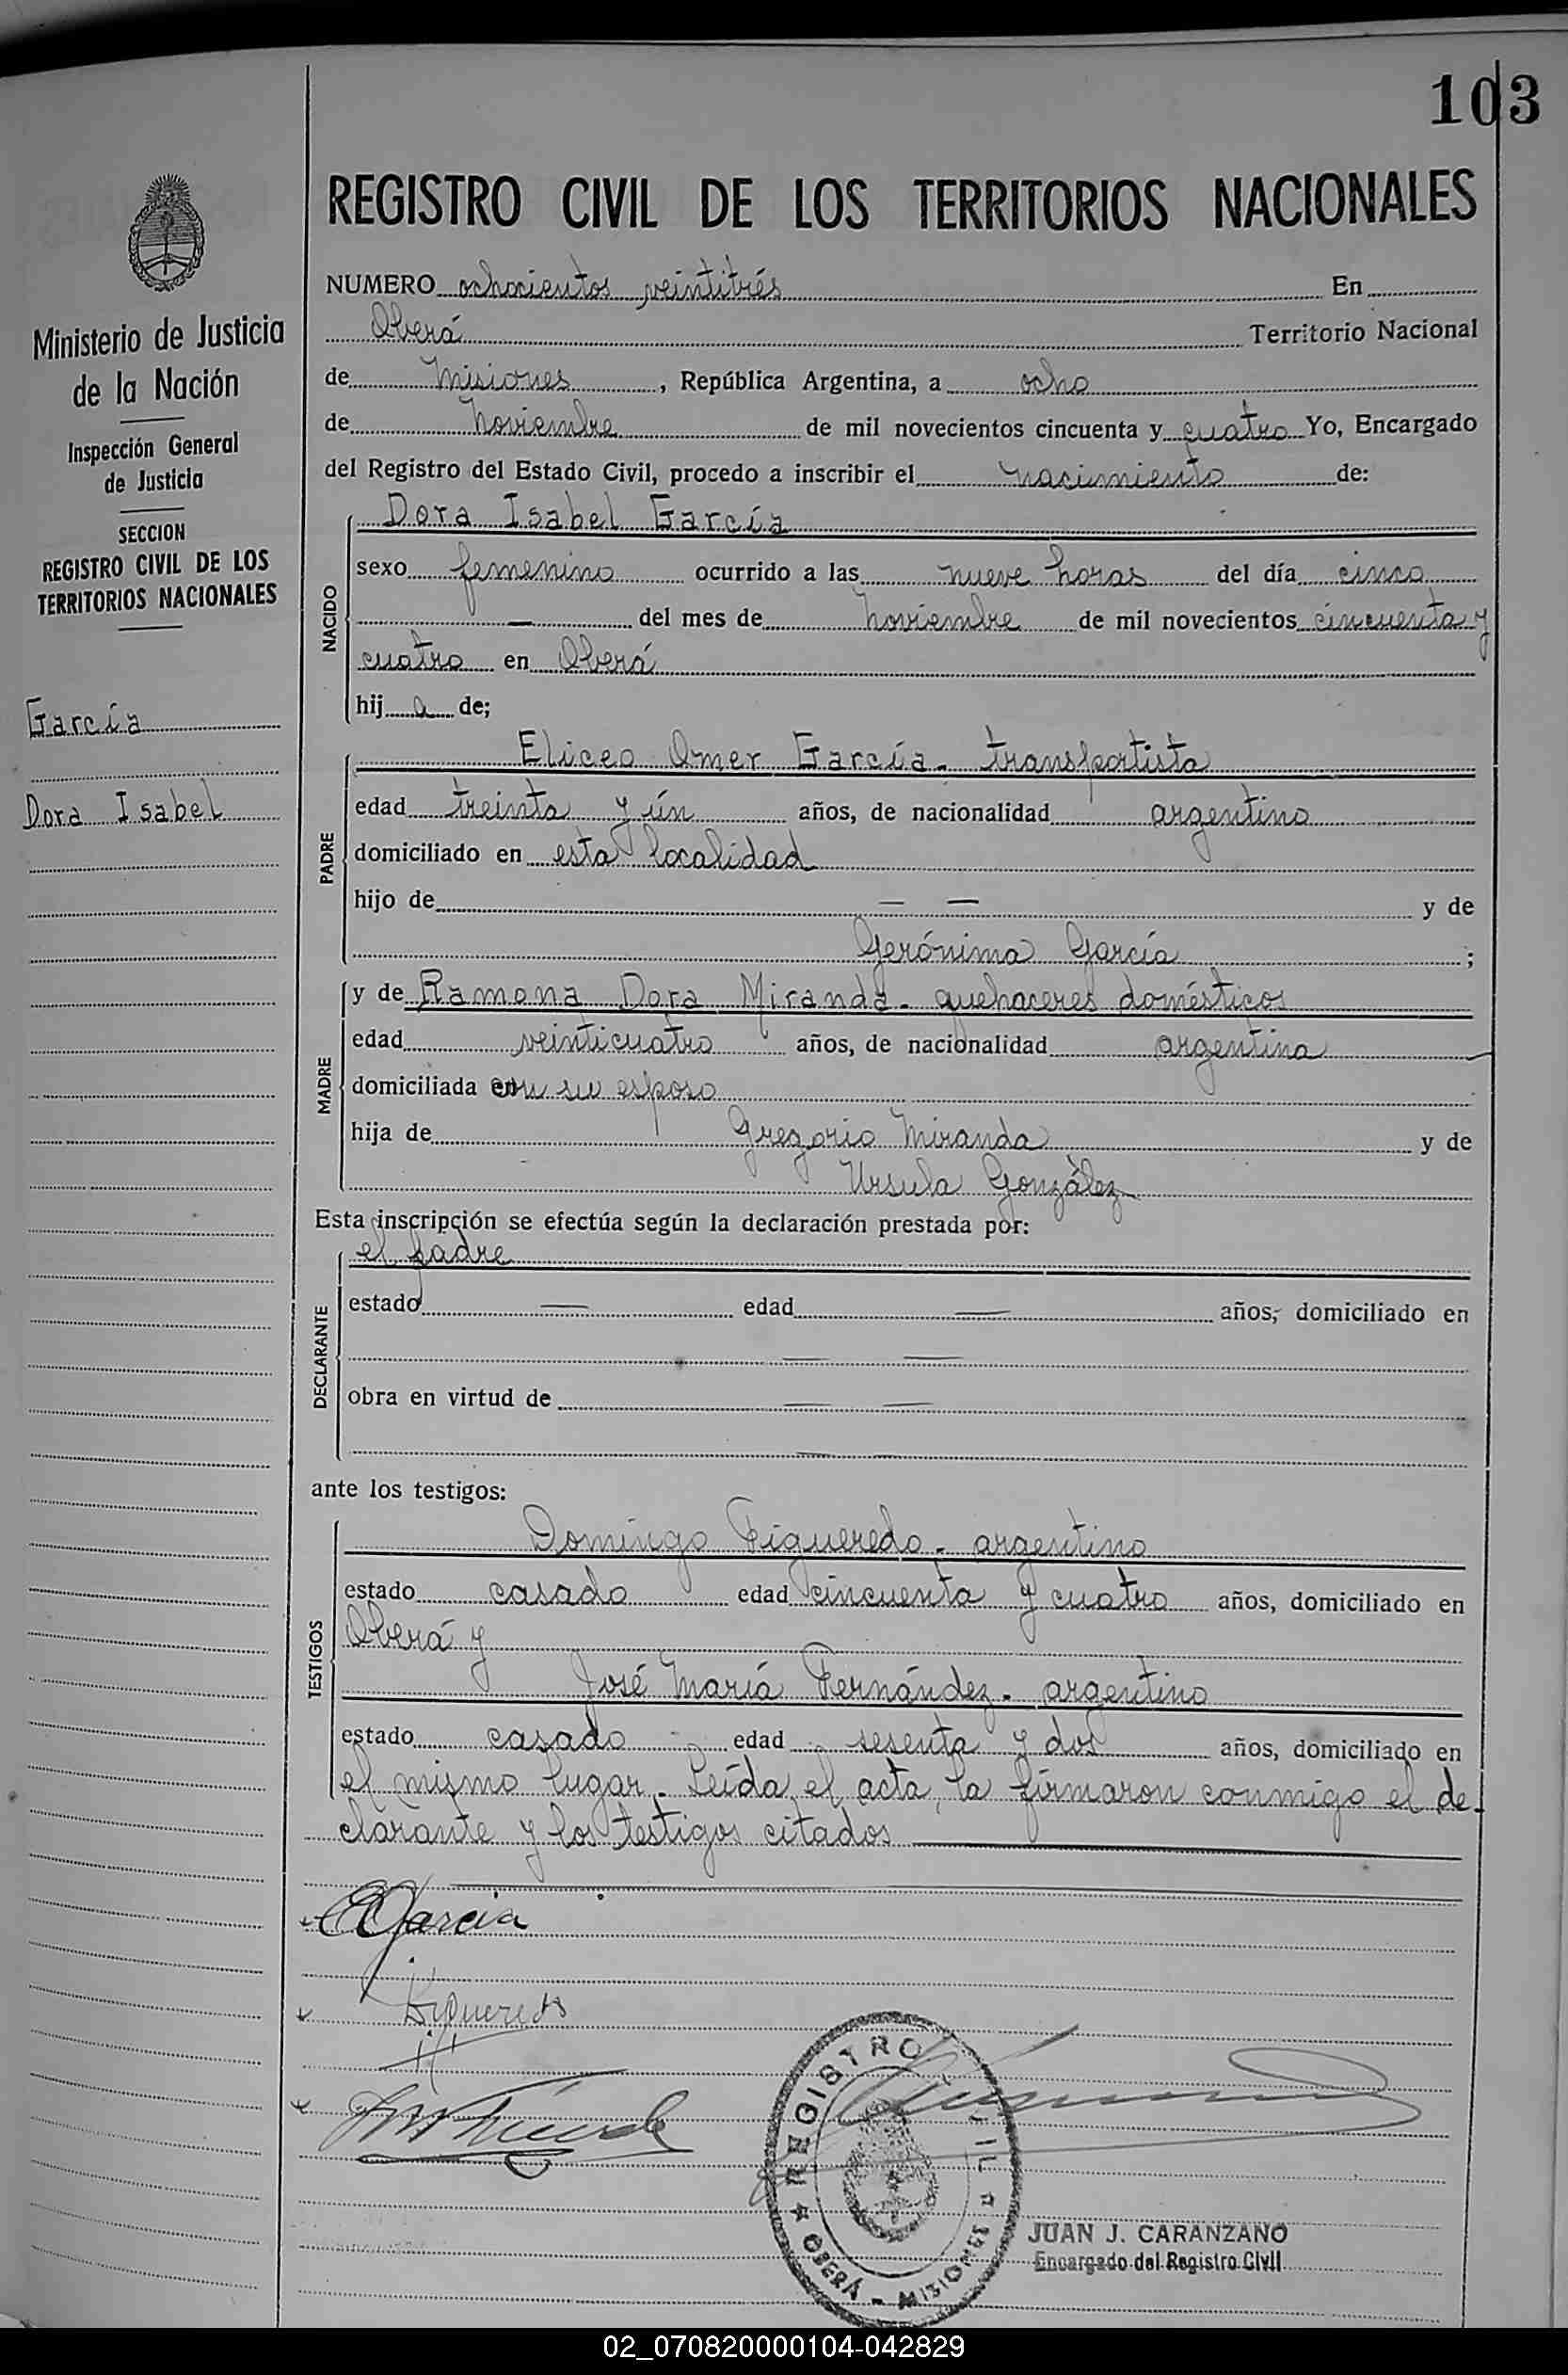 103
REGISTRO CIVIL DE LOS TERRITORIOS NACIONALES
Ministerio de Justicia
de la Nación
Inspección General
de Justicia
SECCION
REGISTRO CIVIL DE LOS
TERRITORIOS NACIONALES
García
Dora Isabel
NUMERO ochocientos veintitrés En
Oberá Territorio Nacional
de Misiones, República Argentina, a ocho
de Noviembre de mil novecientos cincuenta y cuatro Yo, Encargado
del Registro del Estado Civil, procedo a inscribir el nacimiento de:
NACIDO
Dora Isabel García
sexo femenino ocurrido a las nueve horas del día cinco
— del mes de Noviembre de mil novecientos cincuenta y
cuatro en Oberá
hij a de;
PADRE
Eliceo Omer García - transportista
edad treinta y ún años, de nacionalidad argentino
domiciliado en esta localidad
hijo de — — y de
Gerónima García ;
MADRE
y de Ramona Dora Miranda - quehaceres domésticos
edad veinticuatro años, de nacionalidad argentina
domiciliada con su esposo
hija de Gregorio Miranda y de
Ursula González
Esta inscripción se efectúa según la declaración prestada por:
DECLARANTE
el padre
estado — edad — años, domiciliado en
— —
obra en virtud de — —
— —
ante los testigos:
TESTIGOS
Domingo Figueredo - argentino
estado casado edad cincuenta y cuatro años, domiciliado en
Oberá y
José María Fernández - argentino
estado casado edad sesenta y dos años, domiciliado en
el mismo lugar - Leída el acta, la firmaron conmigo el de-
clarante y los testigos citados
EOGarcia
Figueredo
REGISTRO CIVIL
OBERÁ - MISIONES
JUAN J. CARANZANO
Encargado del Registro Civil
02_070820000104-042829